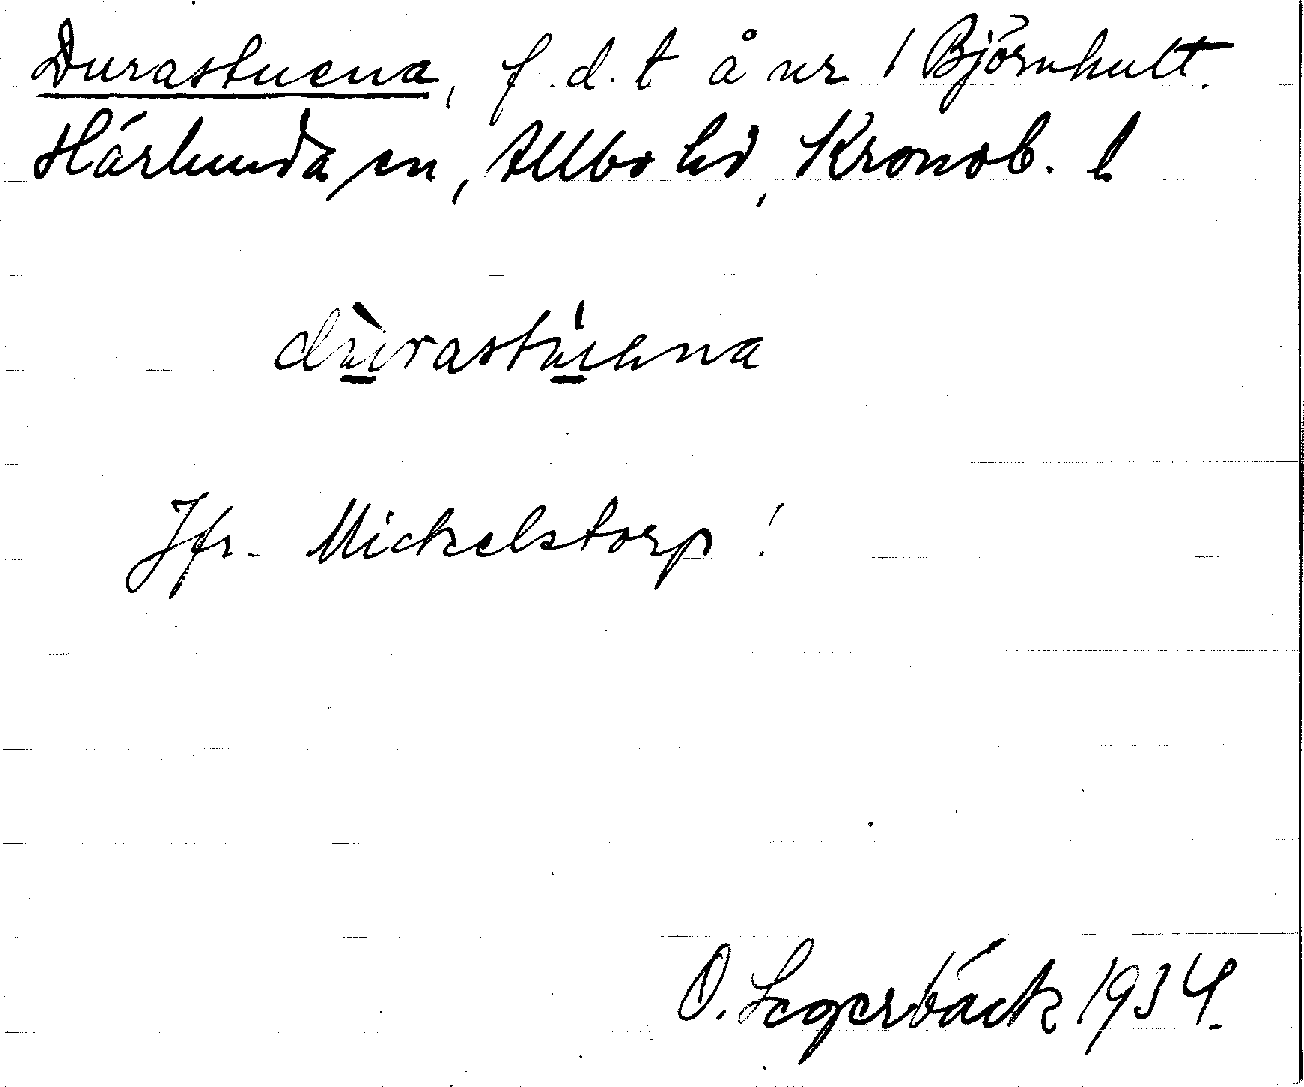 Durastuena, f.d.t å nr 1 Björnhult.
Härlunda sn, Allbo hd, Kronob. l
dùrastúena
Jfr. Mickelstorp!
O. Segerbäck 1934.